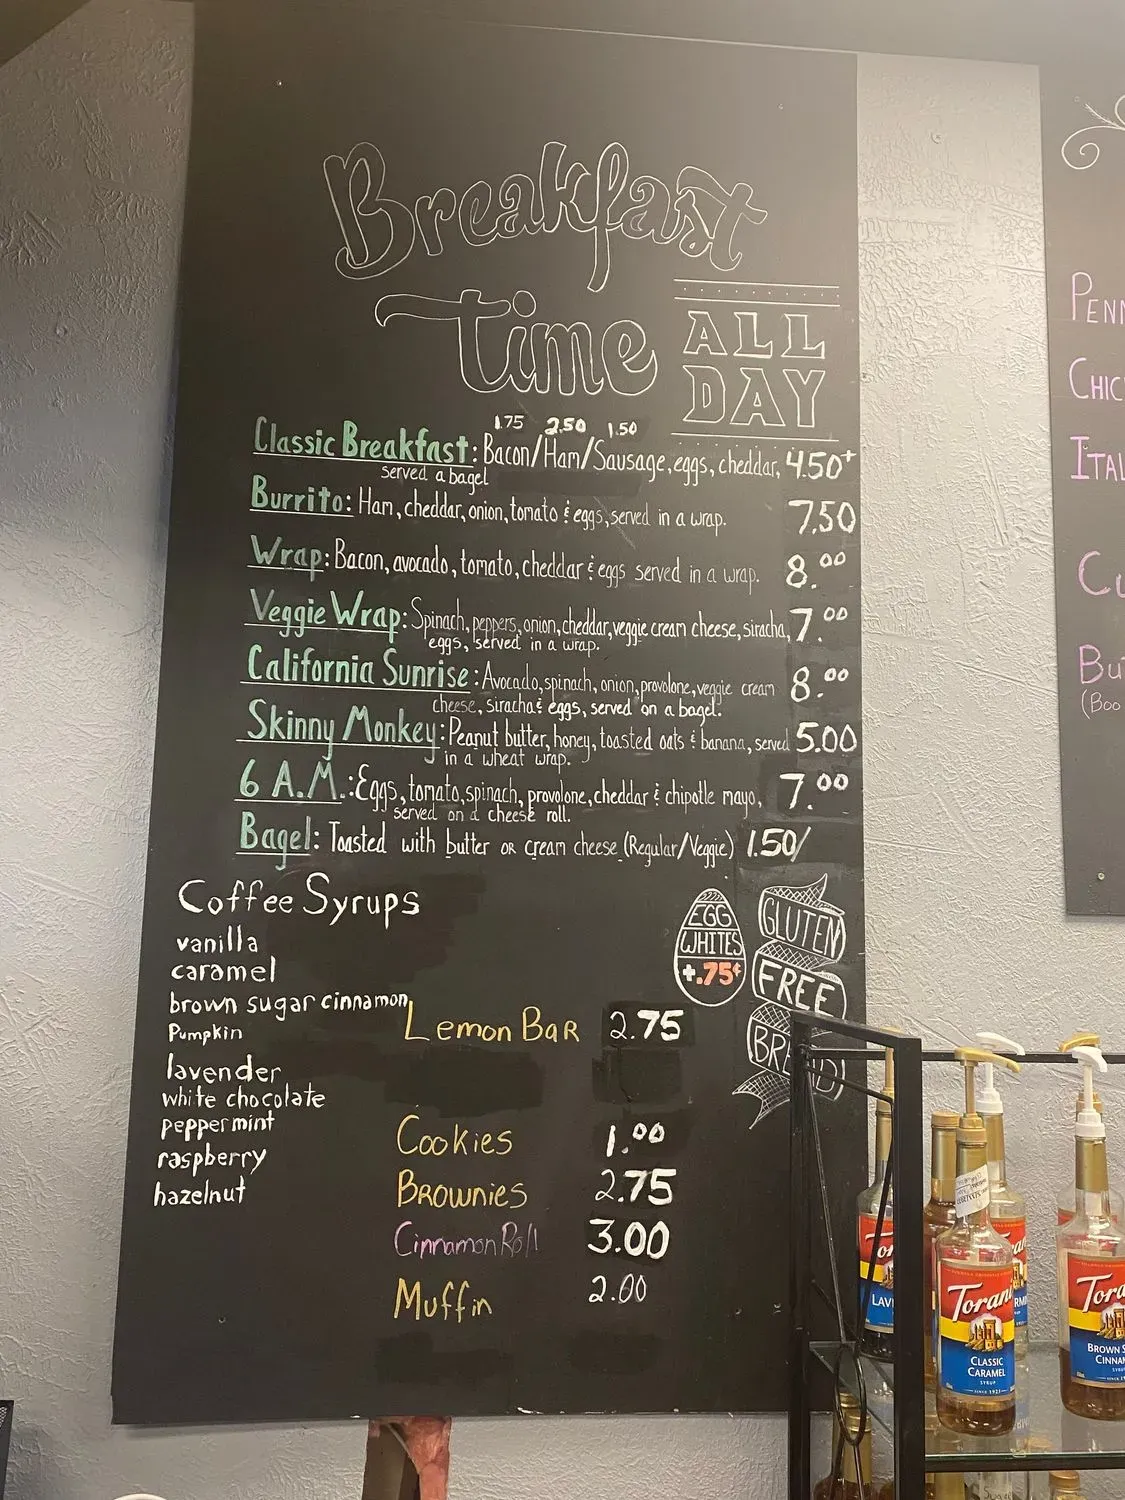 Breakfast
Time
ALL
DAY
1.75 2.50 1.50
Classic Breakfast: Bacon/Ham/Sausage, eggs, cheddar, 4.50+
served a bagel
Burrito: Ham, cheddar, onion, tomato & eggs, served in a wrap. 7.50
Wrap: Bacon, avocado, tomato, cheddar & eggs served in a wrap. 8.00
Veggie Wrap: Spinach, peppers, onion, cheddar, veggie cream cheese, siracha, 7.00
eggs, served in a wrap.
California Sunrise: Avocado, spinach, onion, provolone, veggie cream 8.00
cheese, siracha & eggs, served on a bagel.
Skinny Monkey: Peanut butter, honey, toasted oats & banana, served 5.00
in a wheat wrap.
6 A.M.: Eggs, tomato, spinach, provolone, cheddar & chipotle mayo, 7.00
served on a cheese roll.
Bagel: Toasted with butter or cream cheese (Regular/Veggie) 1.50/
Coffee Syrups
vanilla
caramel
brown sugar cinnamon
Pumpkin
lavender
white chocolate
peppermint
raspberry
hazelnut
EGG
WHITES
+.75¢
GLUTEN
FREE
BREAD
Lemon Bar 2.75
Cookies 1.00
Brownies 2.75
Cinnamon Roll 3.00
Muffin 2.00
PENN
CHIC
ITAL
CU
BU
(BOO
Tor
LAV
Torani
CLASSIC
CARAMEL
SYRUP
SINCE 1925
Tora
BROWN S
CINNAM